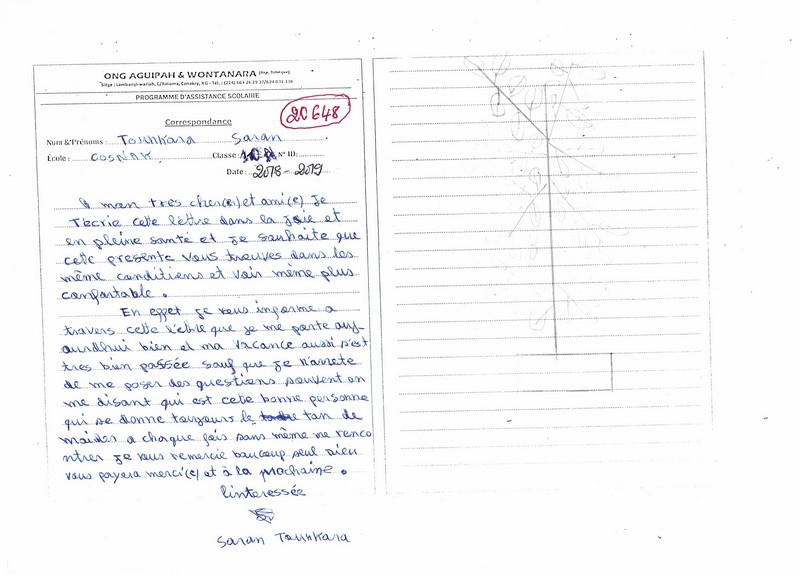 ONG AGUIPAH & WONTANARA
PROGRAMME D'ASSISTANCE SCOLAIRE
20648
Correspondance
Nom &Prénoms : Tounkara Saran
École : COSNAK Classe : N° ID:
Date : 2018 - 2019
A mon très cher(e) et ami(e) je
T'écrie cette lèttre dans la joie et
en pleine santé et je souhaite que
cette presente vous trouves dans les
même conditiens et voir même plus
confortable .
En effet je vous informe a
travers cette lèttre que je me porte auj-
aurdhui bien et ma vacance aussi s'est
tres bien passée sauf que je n'arrete
de me poser des questiens souvent en
me disant qui est cette bonne personne
qui se donne toujours le tan de
m'aider a chaque fois sans même me renco
ntrer je vous remercie baucoup seul Dieu
vous payera merci(e) et à la prochaine .
l'interessée
Saran Tounkara